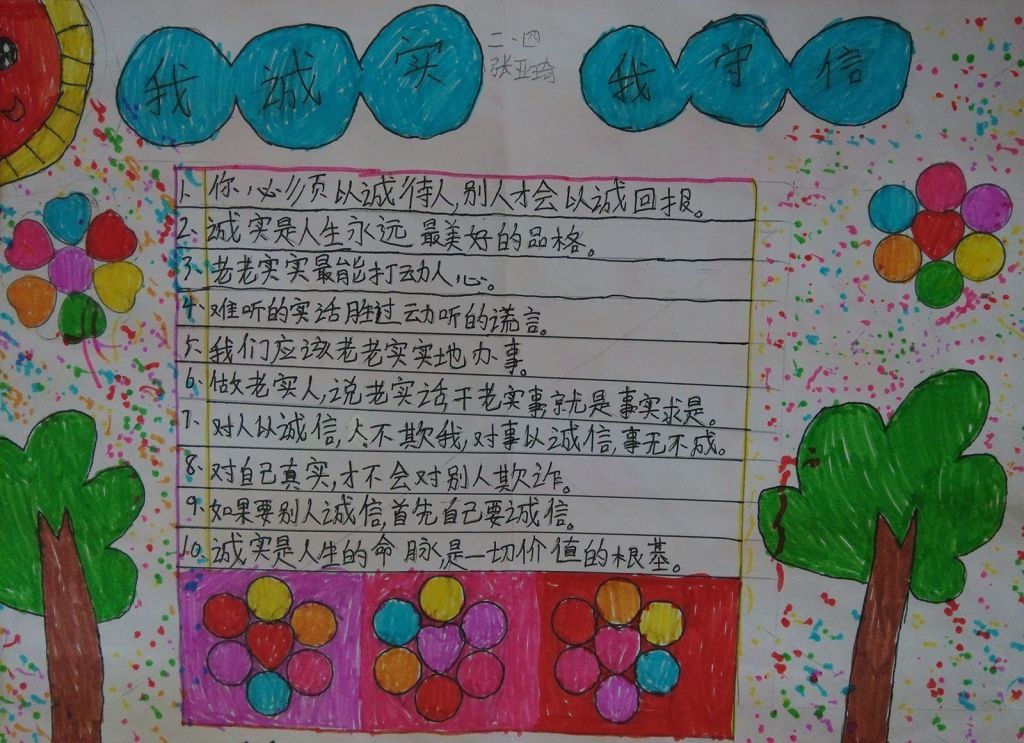 我诚实 我守信
二、四
张亚琦
1、你必须以诚待人,别人才会以诚回报。
2、诚实是人生永远最美好的品格。
3、老老实实最能打动人心。
4、难听的实话胜过动听的谎言。
5、我们应该老老实实地办事。
6、做老实人,说老实话干老实事就是事实求是。
7、对人以诚信,人不欺我,对事以诚信,事无不成。
8、对自己真实,才不会对别人欺诈。
9、如果要别人诚信,首先自己要诚信。
10、诚实是人生的命脉,是一切价值的根基。